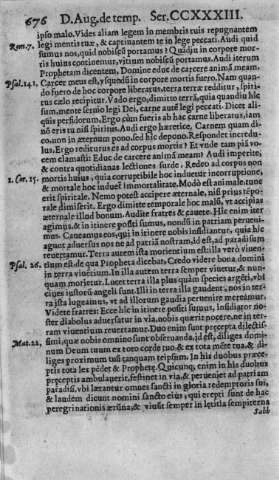 676 D. Aug. de temp. Ser. CCXXXIII.
ipso malo. Vides aliam legem in membris tuis repugnantem
Rom. 7. legi mentis tuæ, & captivantem te in lege peccati. Audi quid
sumus nos, quid nobiscum portamus? Quãdiu in corpore mor-
tis huius continemur, vitium nobiscum portamus. Audi iterum
Prophetam dicentem, Domine educ de carcere animã meam.
Psal. 141. Carcer meus est, ysquodiu in corpore mortis fuero. Nam quan-
do fuero de hoc corpore liberatus, terra terræ redditur, spiri-
tus cælo recipitur. Vado ergo, dimitto terrã, quia quamdiu hic
sum, mente servio legi Dei, carne autẽ legi peccati. Dicet ali-
quis perfidorum, Ergo cùm fueris ab hac carne liberatus, iam
nõ eris nisi spiritus. Audi ergo hæretice. Carnem quam di-
mitto, non in æternum pono, sed hîc depono. Respondet incredu-
lus, Ergo rediturus es ad corpus mortis? Et unde tam piâ vo-
cem clamasti: Educ de carcere animã meam? Audi imperite,
& contra quotidianas lectiones surde. Redeo ad corpus non
1. Cor. 15. mortis huius, quia corruptibile hoc induetur incorruptione,
& mortale hoc induet immortalitate. Modò est animale, tunc
erit spiritale. Nemo potest accipere æternale, nisi prius tẽpo-
rale dimiserit. Ergo dimitte temporale hoc malũ, vt accipias
æternale illud bonum. Audite fratres & cauete. Hîc enim iter
agimus, & in itinere positi sumus, nondũ in patriam peruenimus.
Caueamus ne, qui in itinere nobis insidiantur, quia hîc
agunt aduersus nos ne ad patriã nostram, id est, ad paradisum
reuertamur. Terra autem ista morientium est: illa verò viuen-
Psal. 26. tium est de qua Propheta dicebat, Credo videre bona domini
in terra viuẽtium. In illa autem terra semper viuetur, & nun-
quam morietur. Lucet terra illa plus quàm species argẽti, vbi
ciues iustorũ angeli sunt. Illi in terra illa gaudent, nos in ter-
ra ista lugeamus, vt ad illorum gaudia peruenire mereamur.
Videte fratres: Ecce hîc in itinere positi sumus, insidiator no-
ster diabolus aduersatur in via, nobis quærit nocere, ne in ter-
ram viuentium reuertamur. Duo enim sunt præcepta dilectis-
Mat. 22. simi, quæ nobis omnino sunt obseruanda, id est, diliges domi-
num Deum tuum ex toto corde tuo, & ex tota mẽte tua, & di-
liges proximum tuũ tanquam teipsum. In his duobus præce-
ptis tota lex pẽdet & Prophetæ. Quicunq, enim in his duobus
præceptis ambulauerit, festinet in via, & perueniet ad patriam
paradisi, vt lætentur omnes sancti in gloria redemptoris sui,
& laudẽm dicunt nomini sancto eius, qui erepti sunt de hac
peregrinationis ærumna, & viuũt semper in lætitia sempiterna
Salu